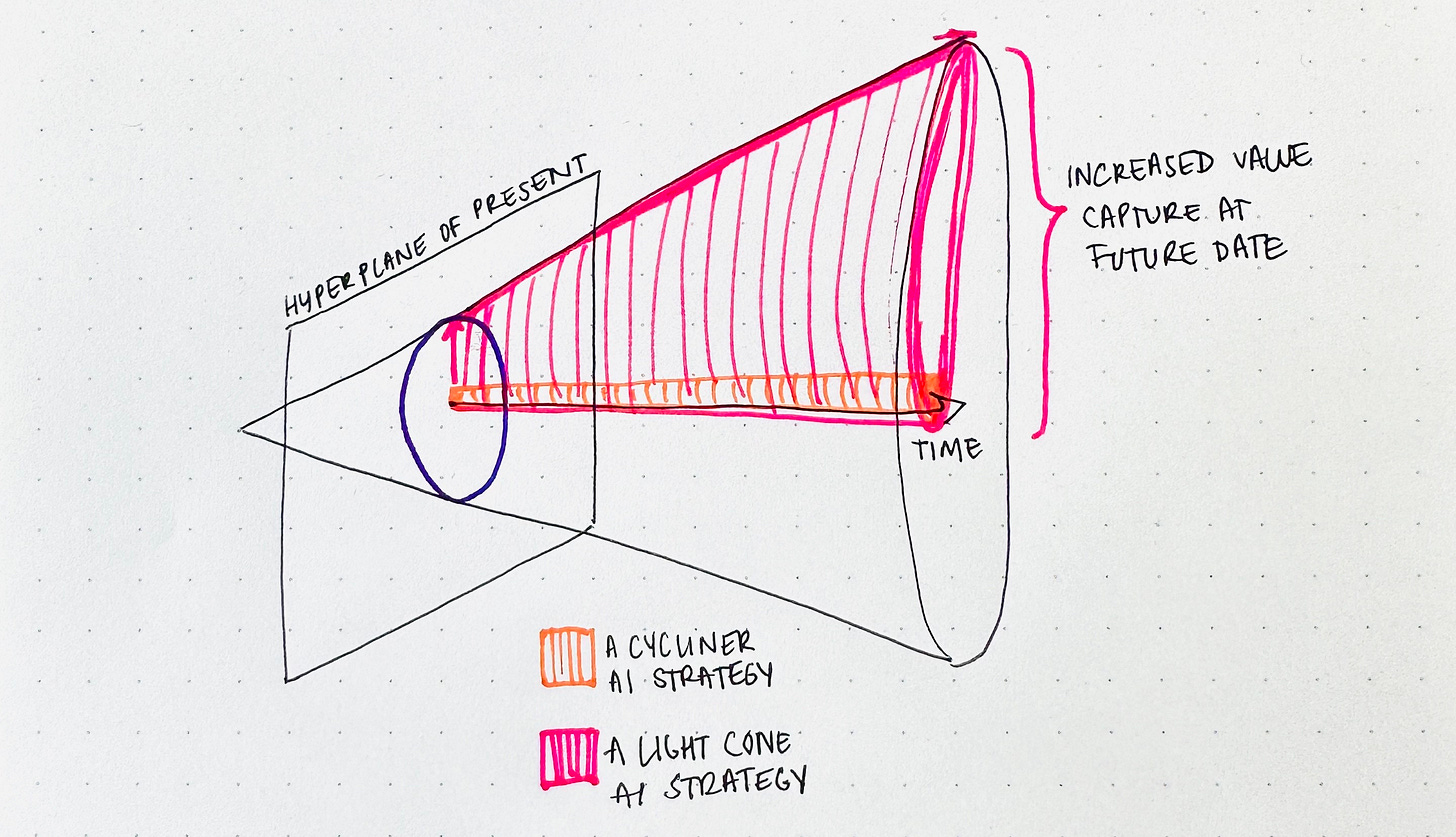 HYPERPLANE OF PRESENT
INCREASED VALUE
CAPTURE AT
FUTURE DATE
TIME
A CYCLINER
AI STRATEGY
A LIGHT CONE
AI STRATEGY